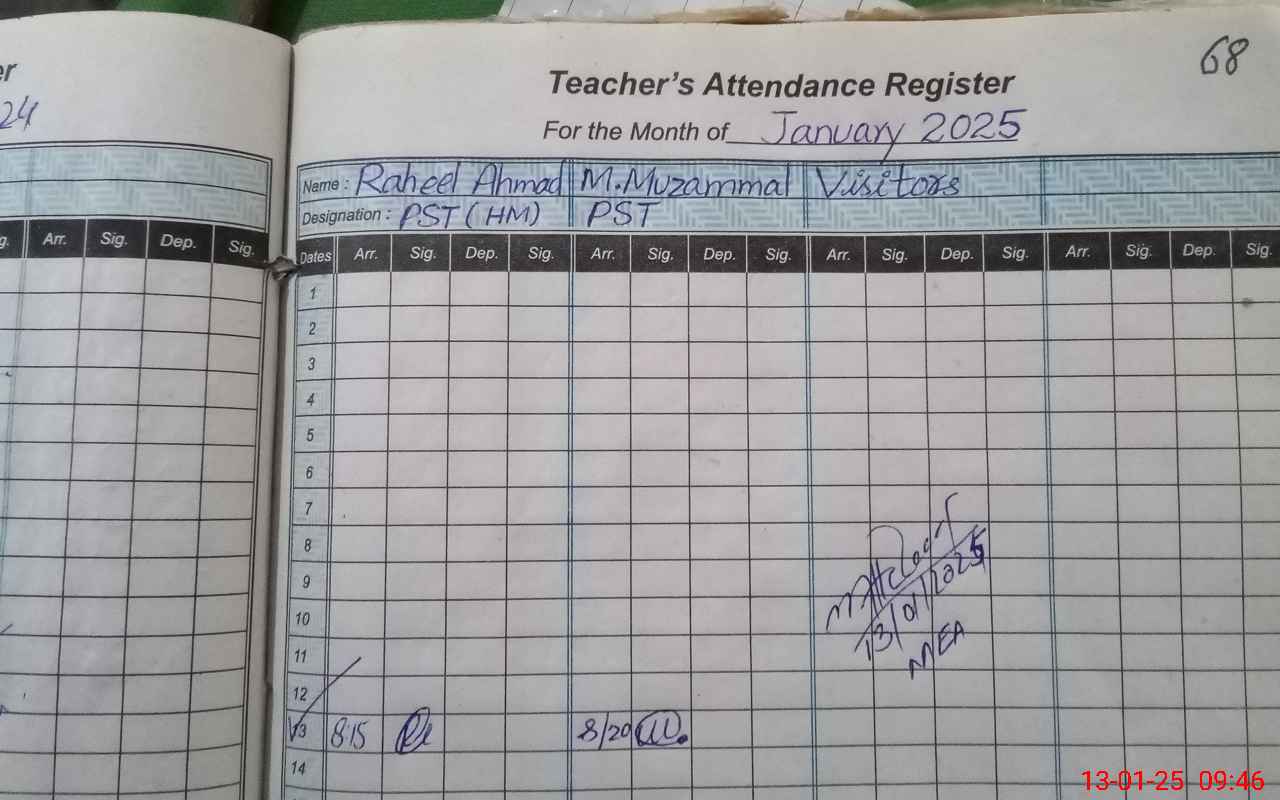 er
24
68
Teacher's Attendance Register
For the Month of January 2025
Name : Raheel Ahmad M.Muzammal Visitors
Designation : PST (HM) PST
g. Arr. Sig. Dep. Sig.
Dates Arr. Sig. Dep. Sig. Arr. Sig. Dep. Sig. Arr. Sig. Dep. Sig. Arr. Sig. Dep. Sig.
1
2
3
4
5
6
7
8
9
10
11
12
13 8:15 8/20
14
13/01/2025
MEA
13-01-25 09:46